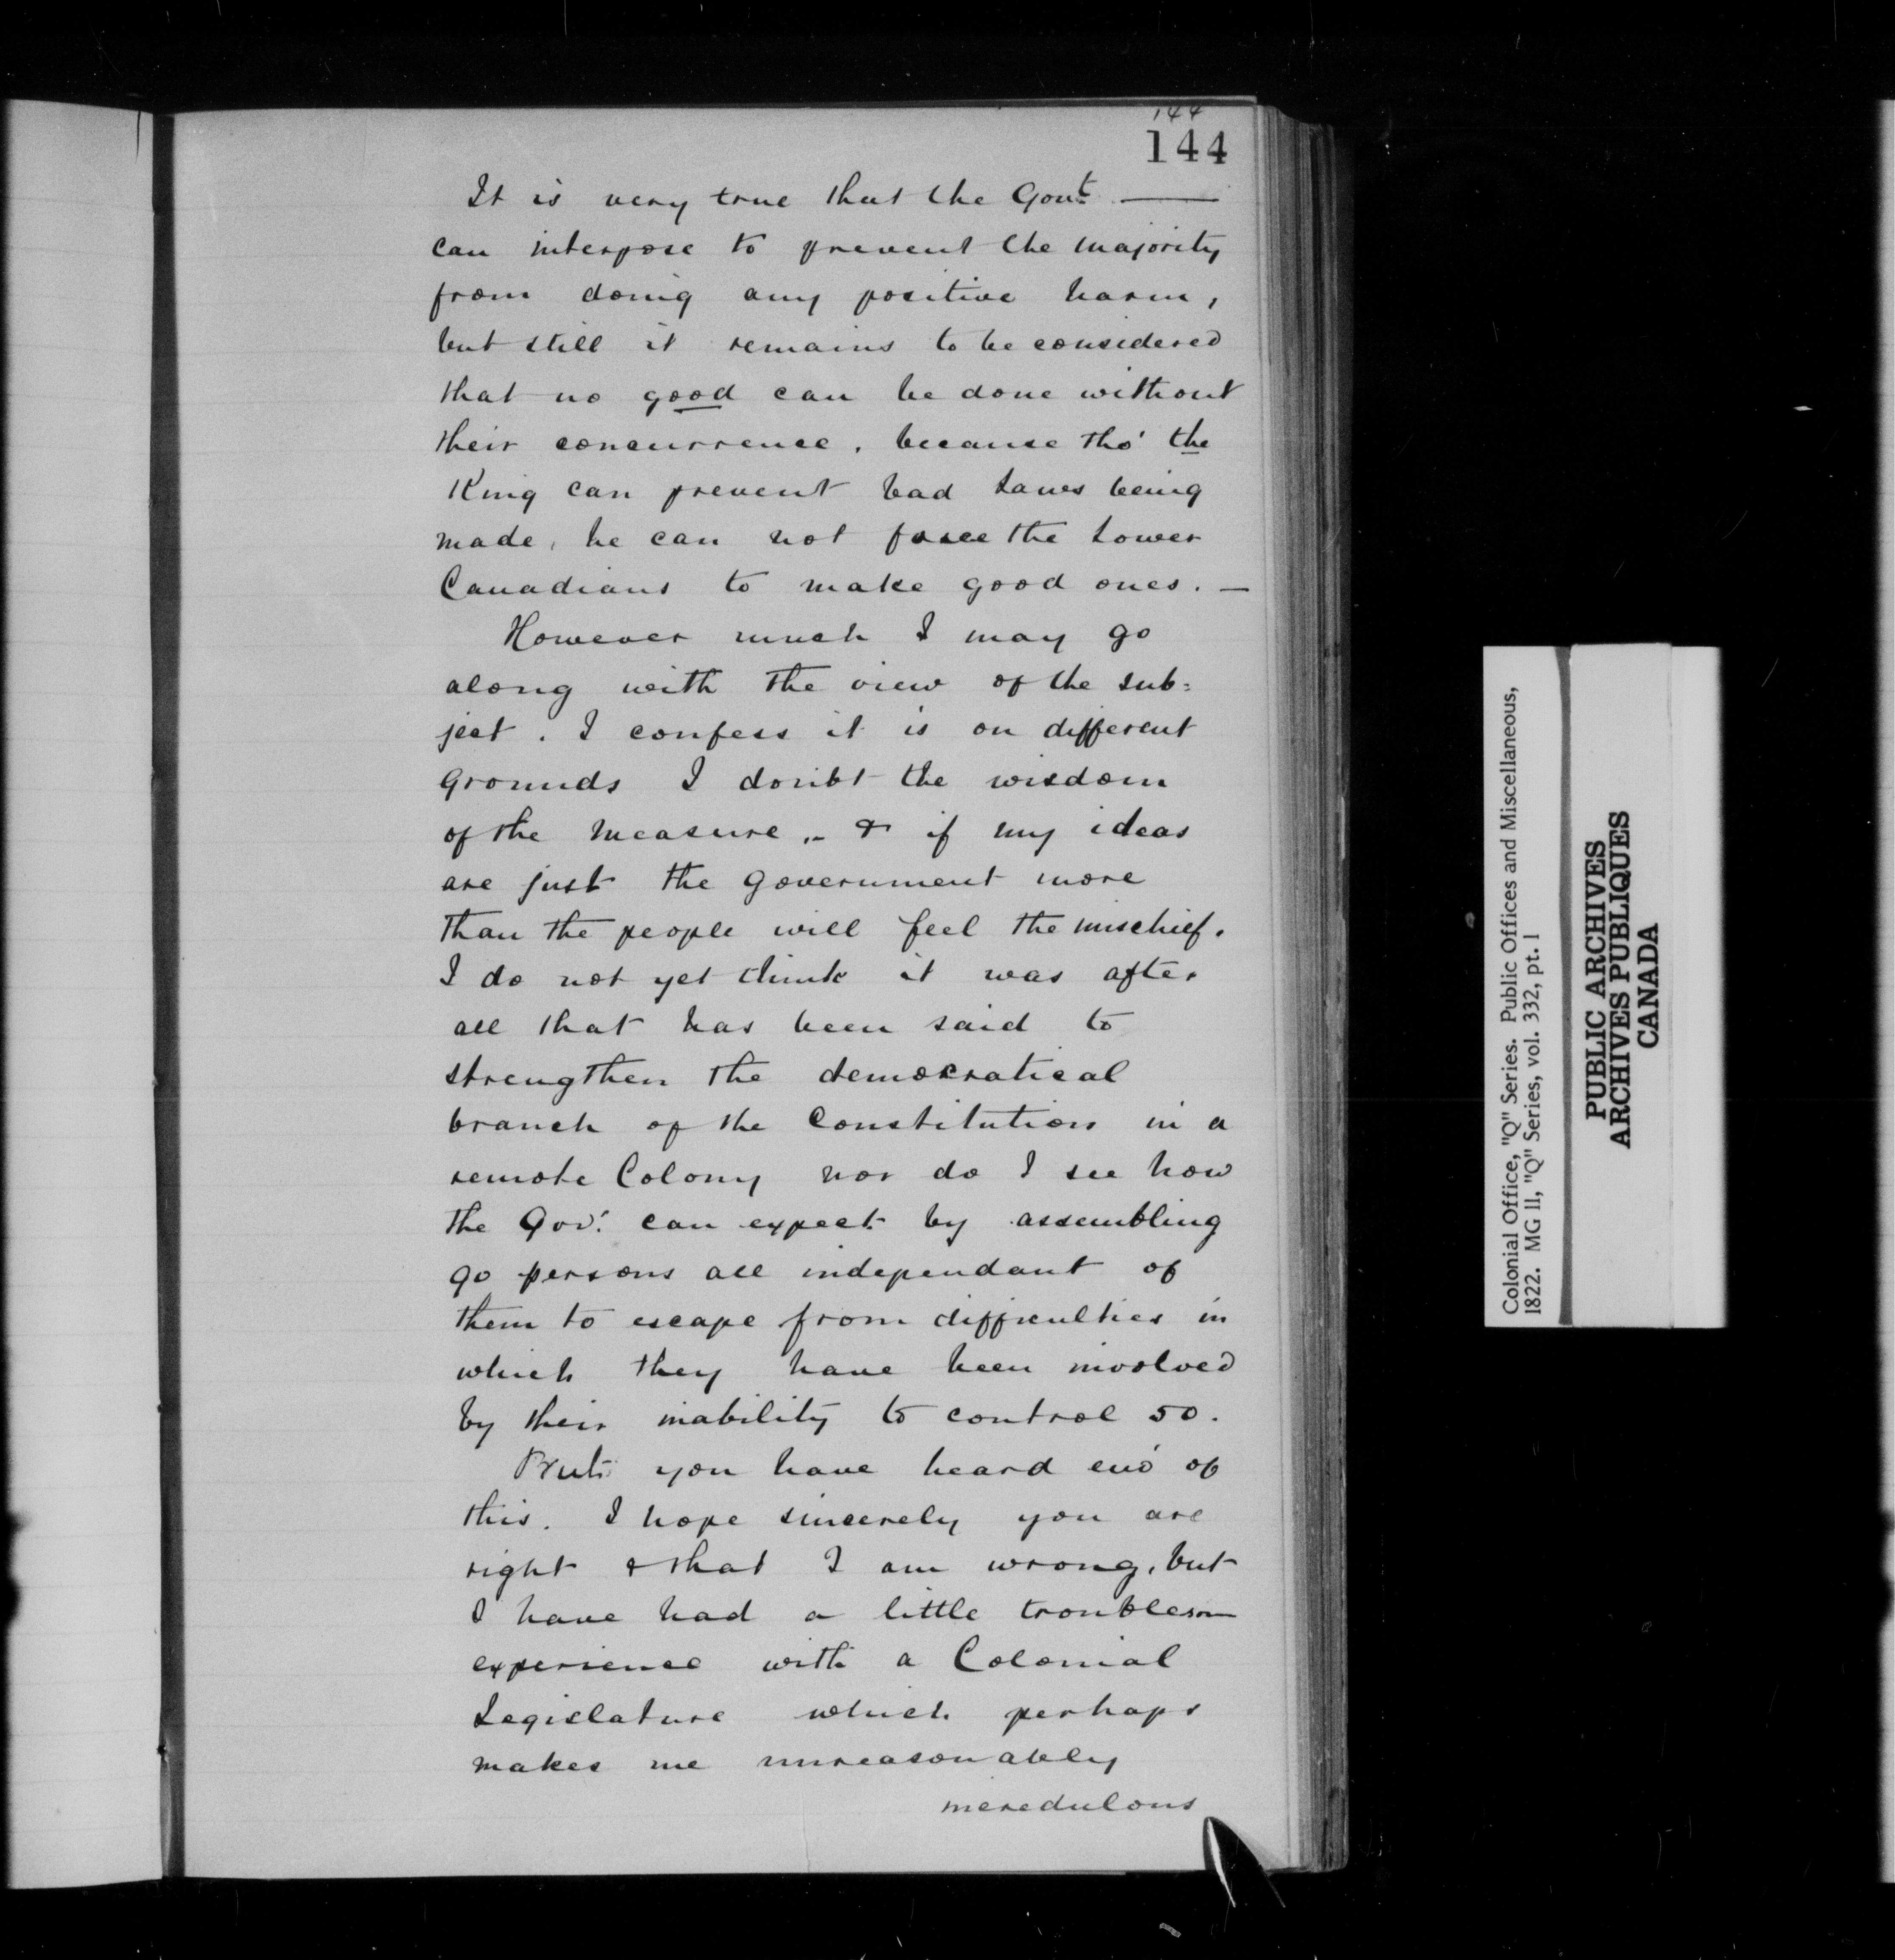 144
144
It is very true that the Govt. —
can interpose to prevent the majority
from doing any positive harm,
but still it remains to be considered
that no good can be done without
their concurrence, because tho' the
King can prevent bad Laws being
made, he can not force the Lower
Canadians to make good ones. —
However much I may go
along with the view of the sub=
ject. I confess it is on different
grounds I doubt the wisdom
of the measure, - & if my ideas
are just the government more
than the people will feel the mischief.
I do not yet think it was after
all that has been said to
strengthen the democratical
branch of the Constitution in a
remote Colony nor do I see how
the Gov! can expect by assembling
90 persons all independant of
them to escape from difficulties in
which they have been involved
by their inability to control 50.
But you have heard eno' of
this. I hope sincerely you are
right & that I am wrong, but
I have had a little troublesom
experience with a Colonial
Legislature which perhaps
makes me unreasonably
incredulous
Colonial Office, "Q" Series. Public Offices and Miscellaneous,
1822. MG 11, "Q" Series, vol. 332, pt. 1
PUBLIC ARCHIVES
ARCHIVES PUBLIQUES
CANADA